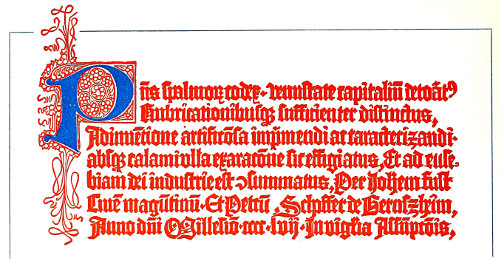 Pn̄s spalmoꝝ codex · venustate capitaliū decoratꝰ
Rubricationibusqꝫ sufficienter distinctus,
Adinuētione artificiosa imprimendi ac caracterizandi ·
absqꝫ calami vlla exaracōne sic effigiatus, Et ad euse-
biam dei industrie est ↄsummatus, Per Joh̄em fust
Ciuē magūtinū · Et Petrū Schoffer de Gernszheim,
Anno dn̄i Millesīo · cccc · lvij · In vigl̄ia Assūpcōis,